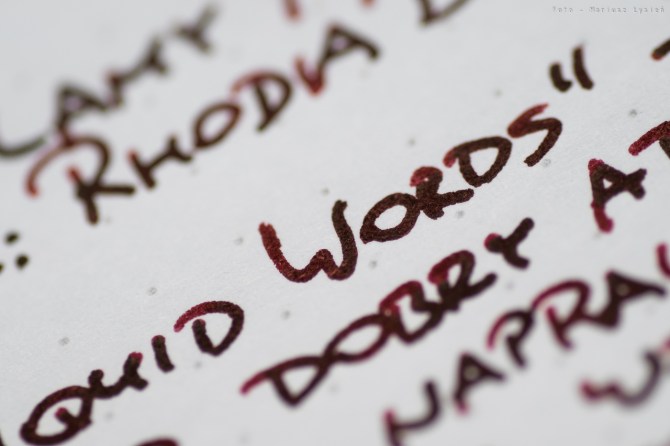 Foto - Mariusz Łysień
LAMY
RHODIA
QUID WORDS"
DOBRY AT
NAPRA